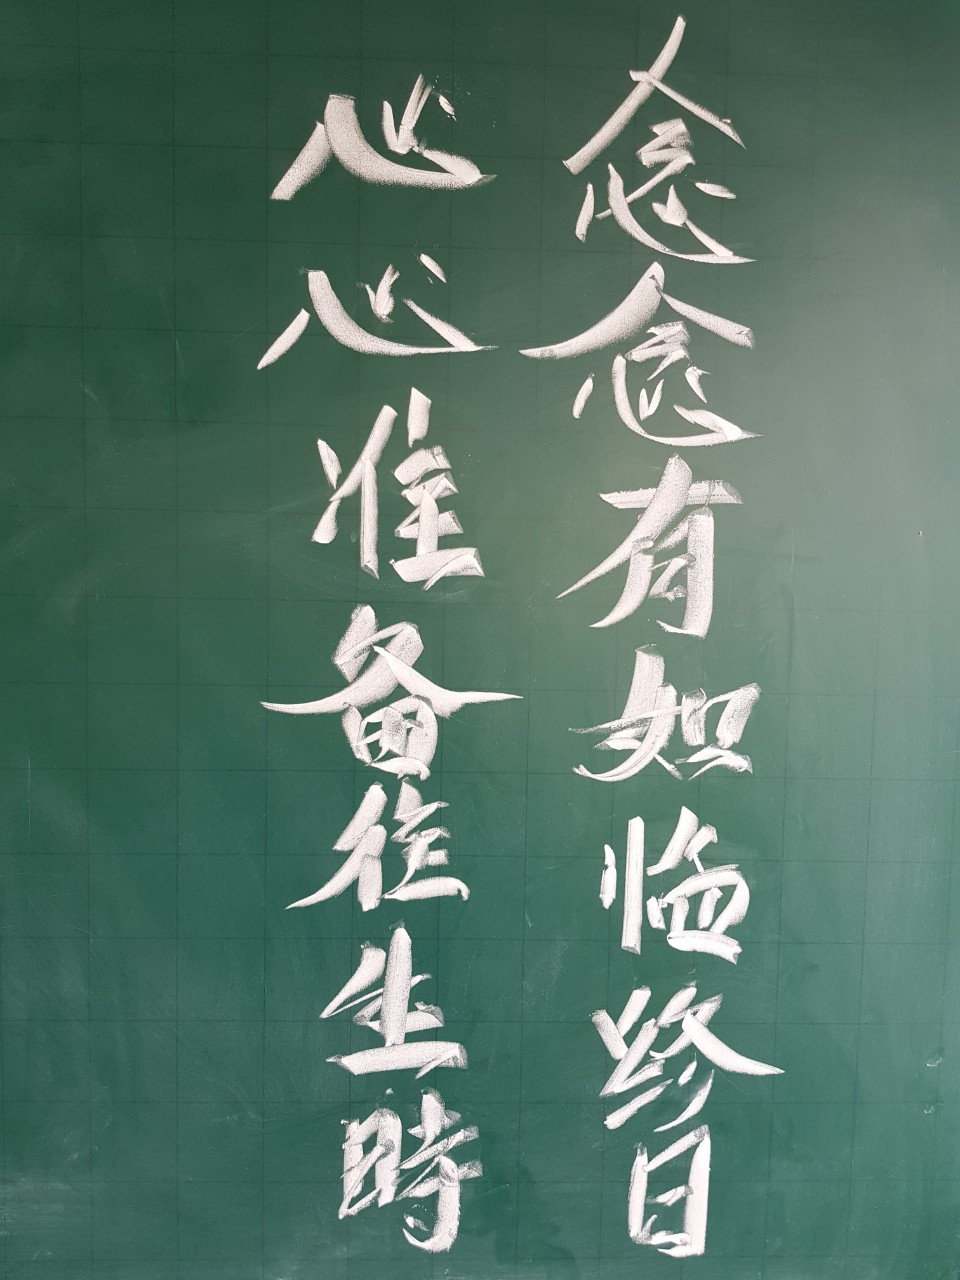 念念有如临终日
心心准备往生時